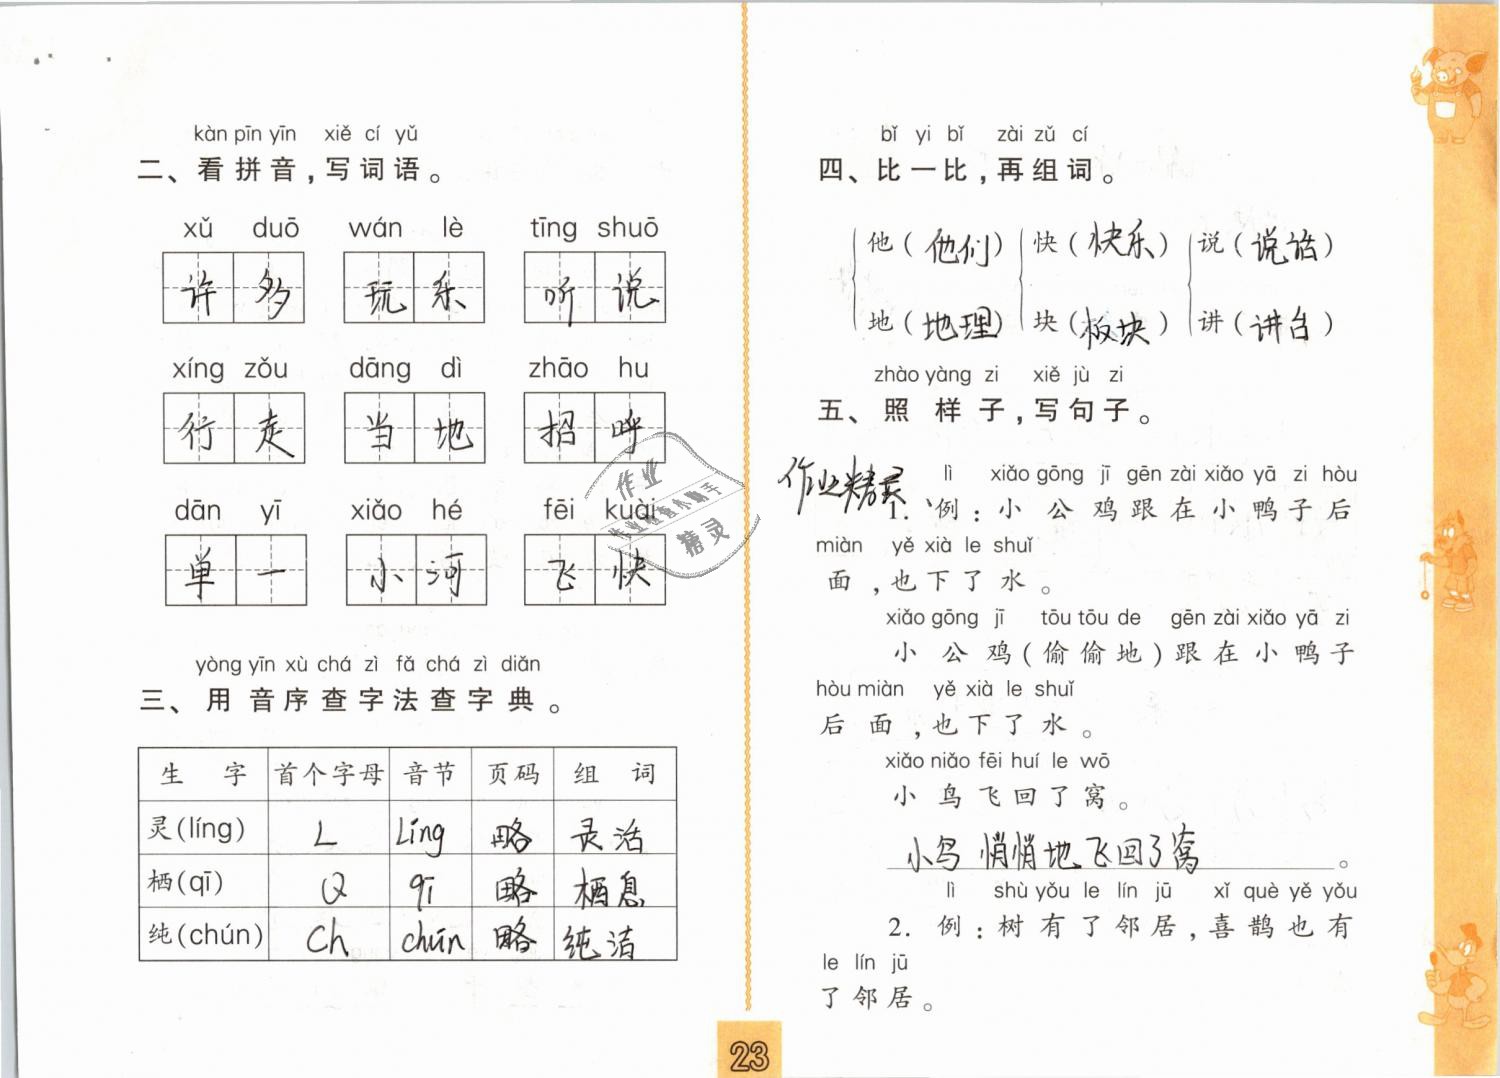 kàn pīn yīn xiě cí yǔ
二、看拼音,写词语。
xǔ duō wán lè tīng shuō
许多 玩乐 听说
xíng zǒu dāng dì zhāo hu
行走 当地 招呼
dān yī xiǎo hé fēi kuài
单一 小河 飞快
yòng yīn xù chá zì fǎ chá zì diǎn
三、用音序查字法查字典。
生字 首个字母 音节 页码 组词
灵(líng) L Líng 略 灵活
栖(qī) Q qī 略 栖息
纯(chún) Ch chún 略 纯洁
bǐ yi bǐ zài zǔ cí
四、比一比,再组词。
他(他们) 快(快乐) 说(说话)
地(地理) 块(板块) 讲(讲台)
zhào yàng zi xiě jù zi
五、照样子,写句子。
作业精灵
lì xiǎo gōng jī gēn zài xiǎo yā zi hòu
1. 例:小公鸡跟在小鸭子后
miàn yě xià le shuǐ
面,也下了水。
xiǎo gōng jī tōu tōu de gēn zài xiǎo yā zi
小公鸡(偷偷地)跟在小鸭子
hòu miàn yě xià le shuǐ
后面,也下了水。
xiǎo niǎo fēi huí le wō
小鸟飞回了窝。
小鸟悄悄地飞回了窝。
lì shù yǒu le lín jū xǐ què yě yǒu
2. 例:树有了邻居,喜鹊也有
le lín jū
了邻居。
作业
作业检查小助手
精灵
23